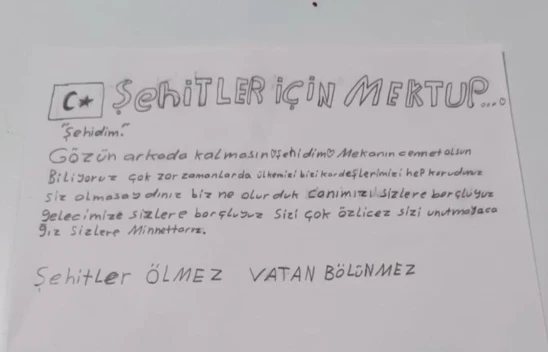 ŞEHİTLER İÇİN MEKTUP....
"Şehidim."
Gözün arkada kalmasın♡şehidim♡ Mekanın cennet olsun
Biliyoruz çok zor zamanlarda ülkemizi bizi kardeşlerimizi hep korudunuz
siz olmasaydınız biz ne olurduk canımızı sizlere borçluyuz
gelecimize sizlere borçluyuz Sizi çok özlicez sizi unutmayaca
ğız Sizlere Minnettarız.
Şehitler ÖLMEZ VATAN BÖLÜNMEZ